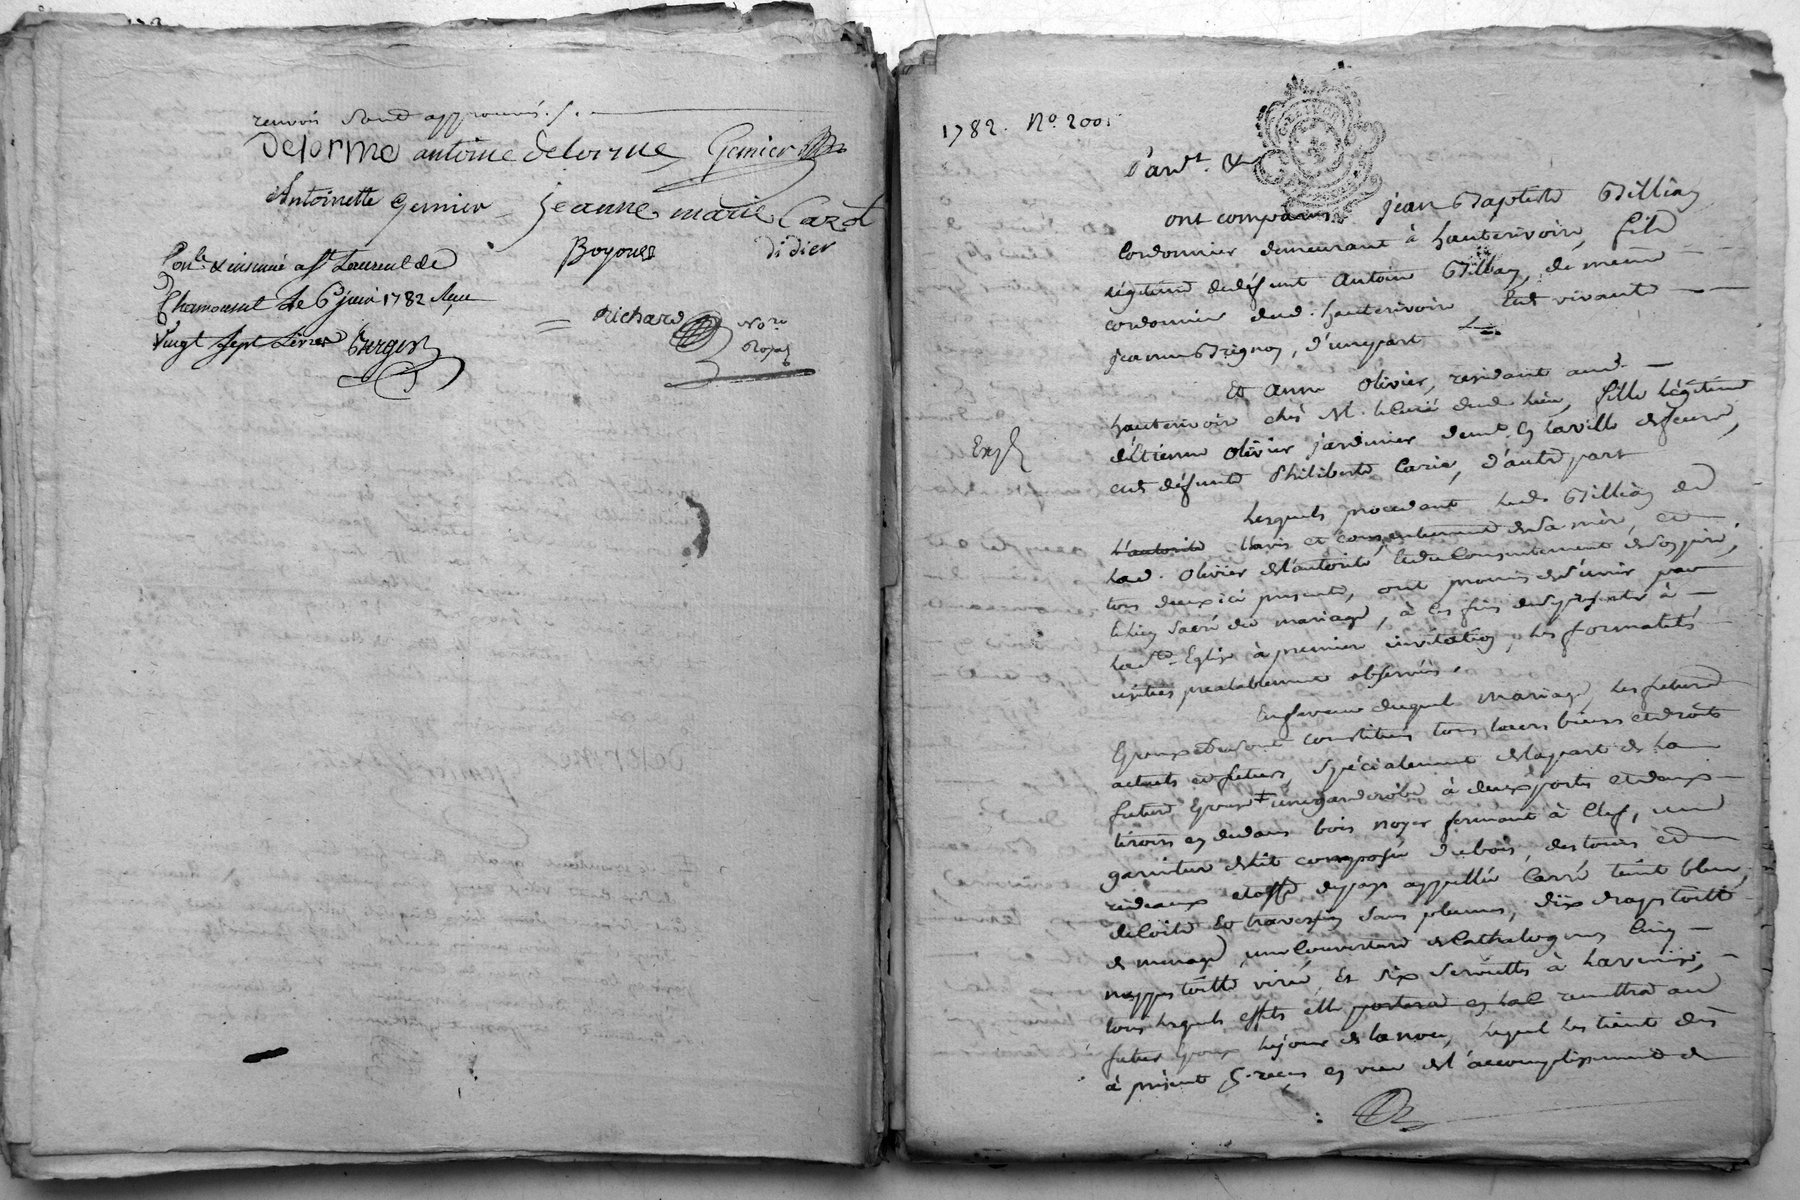 renvois sont approuvés ./.
Delorme antoine delorme Genier
Antoinette Genier Jeanne marie Cazot
Boyoud didier
Conlé & insinué a St Laurent de
Chamousset le 6e juin 1782 Reçu
Vingt sept Livres Berger
Richard No.re Royal
1782. No. 200.
P'ard.t &
ont comparus jean Baptiste Billiay
Cordonnier demeurant à hauterivoire, fils
légitime de défunt Antoine Billiay, de meme
cordonier dud. hauterivoire Et vivante
jeanne , d'une part
Et Anne Olivier, residant aud.
hauterivoire chés M. le Curé dud. lieu, fille Légitime
d'Etienne Olivier jardinier demt. en la ville de feurs,
Exp
et de défunte Philiberte Carie, d'autre part
Lesquels procedant led. Billiay de
l'autorité l'avis et consentement de sa mère, et
lad. Olivier de l'autorité et du Consentement de son père,
tous deux ici presents, ont promis de s'unir par
le lien Sacré du mariage, à ces fins de se presenter à
la Ste. Eglise à premiere invitation, les formalités
usitées prealablement observées.
En faveur duquel mariage, les futurs
Epoux se sont constitués tous leurs biens et droits
actuels et futurs, spécialement de la part de la
future Epouse + une garderobe à deux portes et deux
tiroirs en dedans bois noyer fermant à Clef, une
garniture de lit composée du bois, des tours et
rideaux etoffe de pays appellée Carré teint bleu,
de Coite Et traversin Sans plumes, dix draps toille
de menage, une Couverture de Cathalogne, Cinq
nappes toille virée, Et Six Serviettes à la venise,
tous lesquels effets elle portera en lad. remettra au
futur Epoux le jour de la noce, lequel les tient dès
à présent p. reçus en vue de l'accomplissement de